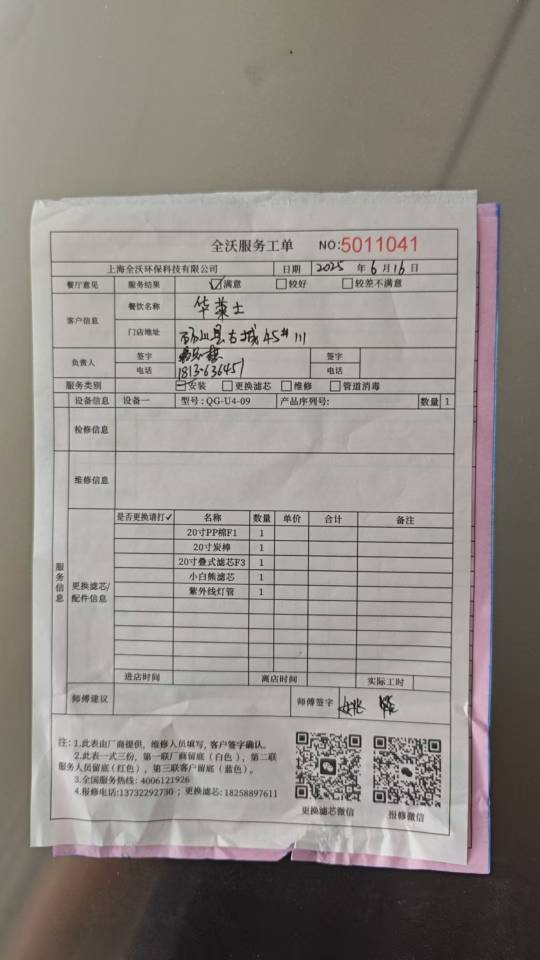 全沃服务工单 NO:5011041
上海全沃环保科技有限公司 日期 2025 年 6 月 16 日
餐厅意见 服务结果 ☑满意 □较好 □较差不满意
客户信息 餐饮名称 华莱士
门店地址 砀山县古城45#川
负责人 签字 签字
电话 电话
服务类别 安装 □更换滤芯 □维修 □管道消毒
服务信息
设备信息 设备一 型号:QG-U4-09 产品序列号: 数量 1
检修信息
维修信息
更换滤芯/配件信息
是否更换请打✓ 名称 数量 单价 合计 备注
20寸PP棉F1 1
20寸炭棒 1
20寸叠式滤芯F3 1
小白熊滤芯 1
紫外线灯管 1
进店时间 离店时间 实际工时
师傅建议 师傅签字 姚
注:1.此表由厂商提供,维修人员填写,客户签字确认。
2.此表一式三份,第一联厂商留底(白色),第二联
服务人员留底(红色),第三联客户留底(蓝色)。
3.全国服务热线:4006121926
4.报修电话:13732292730;更换滤芯:18258897611
更换滤芯微信 报修微信